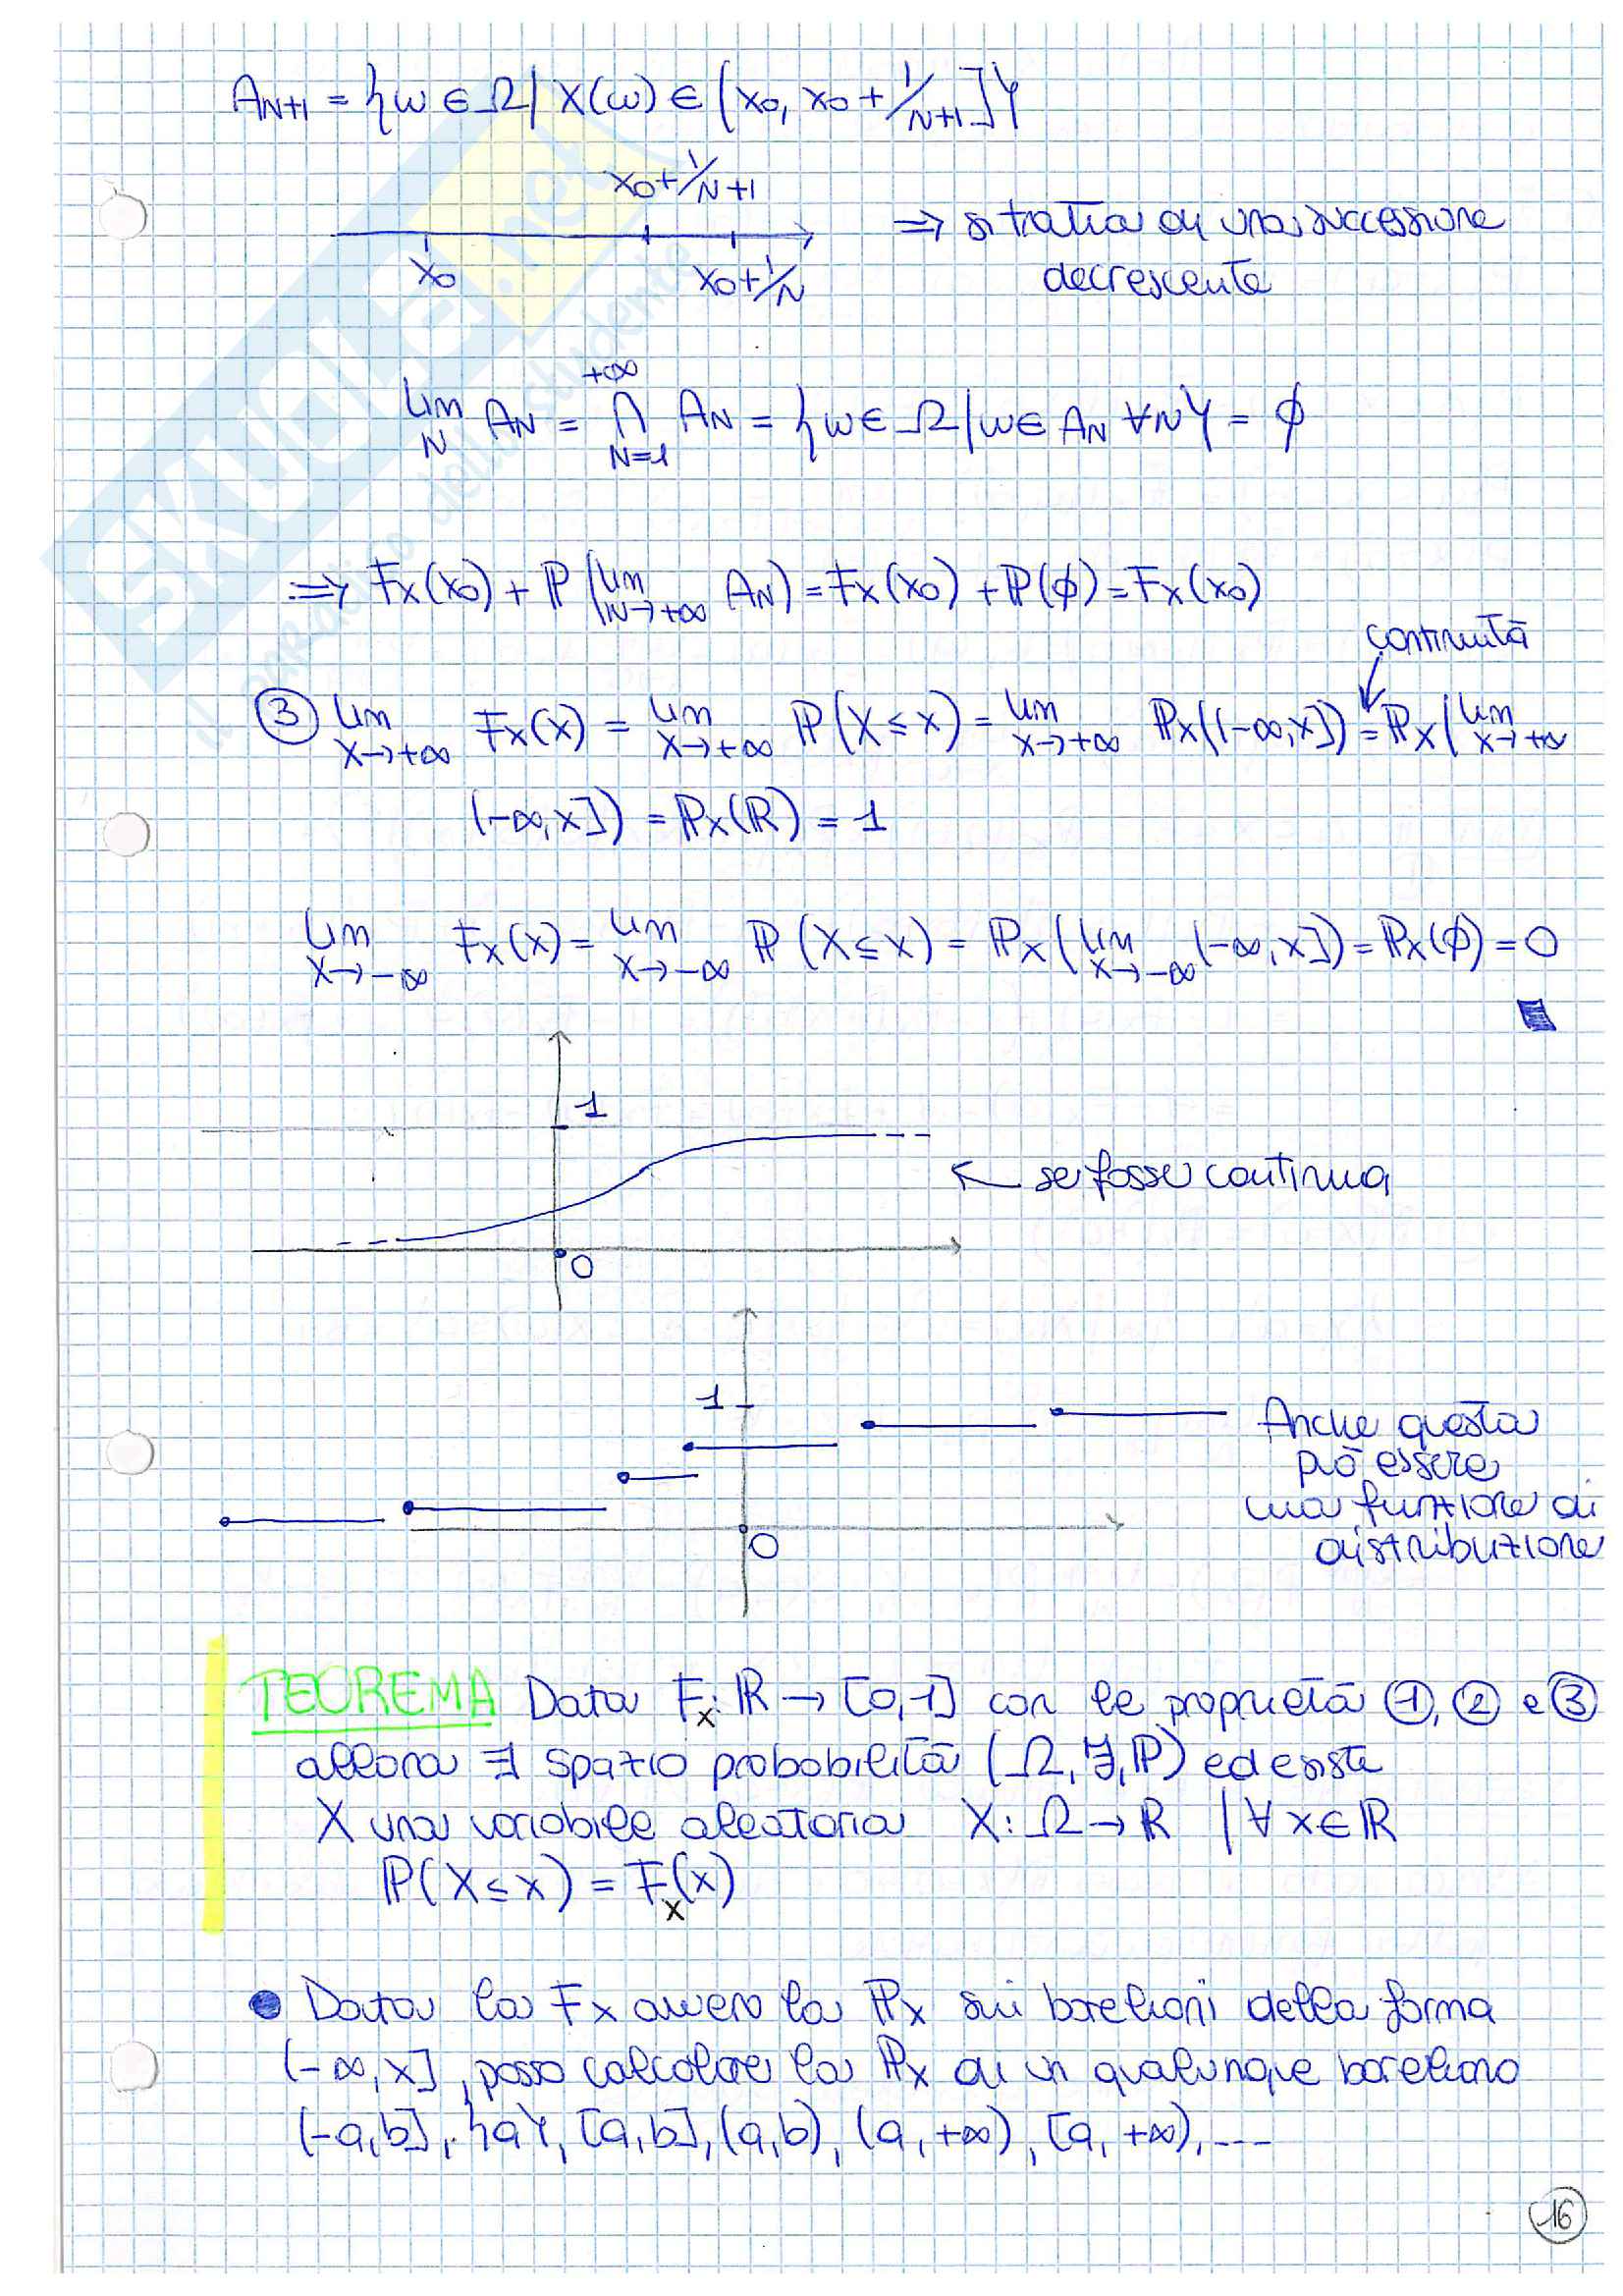 A_{N+1} = {ω ∈ Ω | X(ω) ∈ (x₀, x₀ + 1/N+1]}
x₀ + 1/N+1
x₀
x₀ + 1/N
⇒ si tratta di una successione
decrescente
lim_N A_N = ⋂_{N=1}^{+∞} A_N = {ω ∈ Ω | ω ∈ A_N ∀N} = ∅
⇒ F_X(x₀) + ℙ(lim_{N→+∞} A_N) = F_X(x₀) + ℙ(∅) = F_X(x₀)
continuità
③ lim_{x→+∞} F_X(x) = lim_{x→+∞} ℙ(X ≤ x) = lim_{x→+∞} ℙ_X((-∞, x]) = ℙ_X(lim_{x→+∞}
(-∞, x]) = ℙ_X(ℝ) = 1
lim_{x→-∞} F_X(x) = lim_{x→-∞} ℙ(X ≤ x) = ℙ_X(lim_{x→-∞} (-∞, x]) = ℙ_X(∅) = 0
1
← se fosse continua
0
1
Anche questa
può essere
una funzione di
distribuzione
0
TEOREMA Data F_X: ℝ → [0,1] con le proprietà ①, ② e ③
allora ∃ spazio probabilità (Ω, ℱ, ℙ) ed esiste
X una variabile aleatoria X: Ω → ℝ | ∀ x ∈ ℝ
ℙ(X ≤ x) = F_X(x)
• Data la F_X ovvero la ℙ_X sui boreliani della forma
(-∞, x], posso calcolare la ℙ_X di un qualunque boreliano
(-a, b], {a}, [a, b], (a, b), (a, +∞), [a, +∞), ---
16